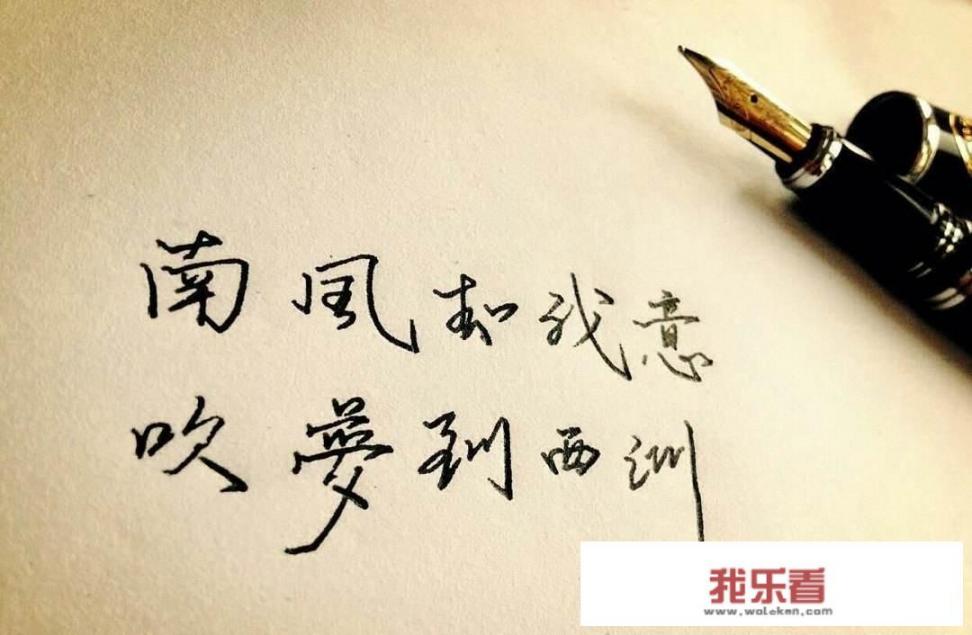 南风知我意
吹夢到西洲
我乐看
www.woleken.com